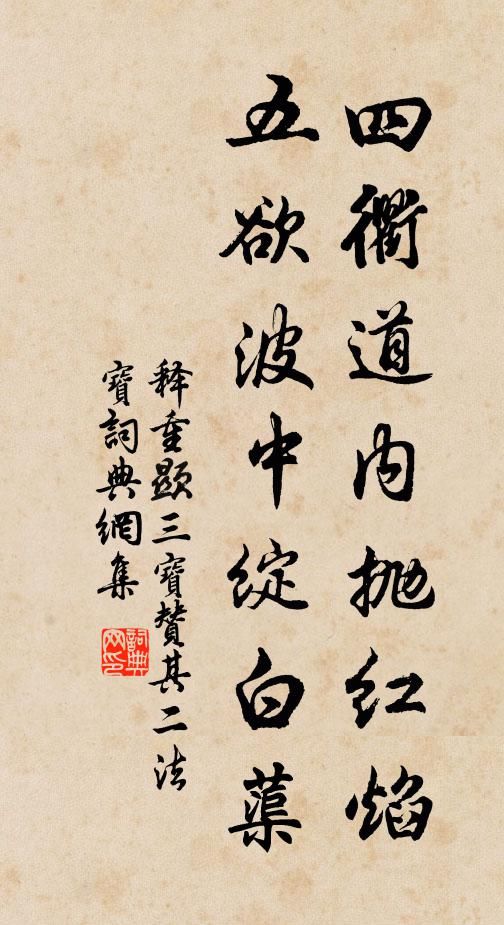 四衢道内抛红焰
五欲波中绽白蕖
释重顯三寶贊其二法
寶詞典網集
詞典网印